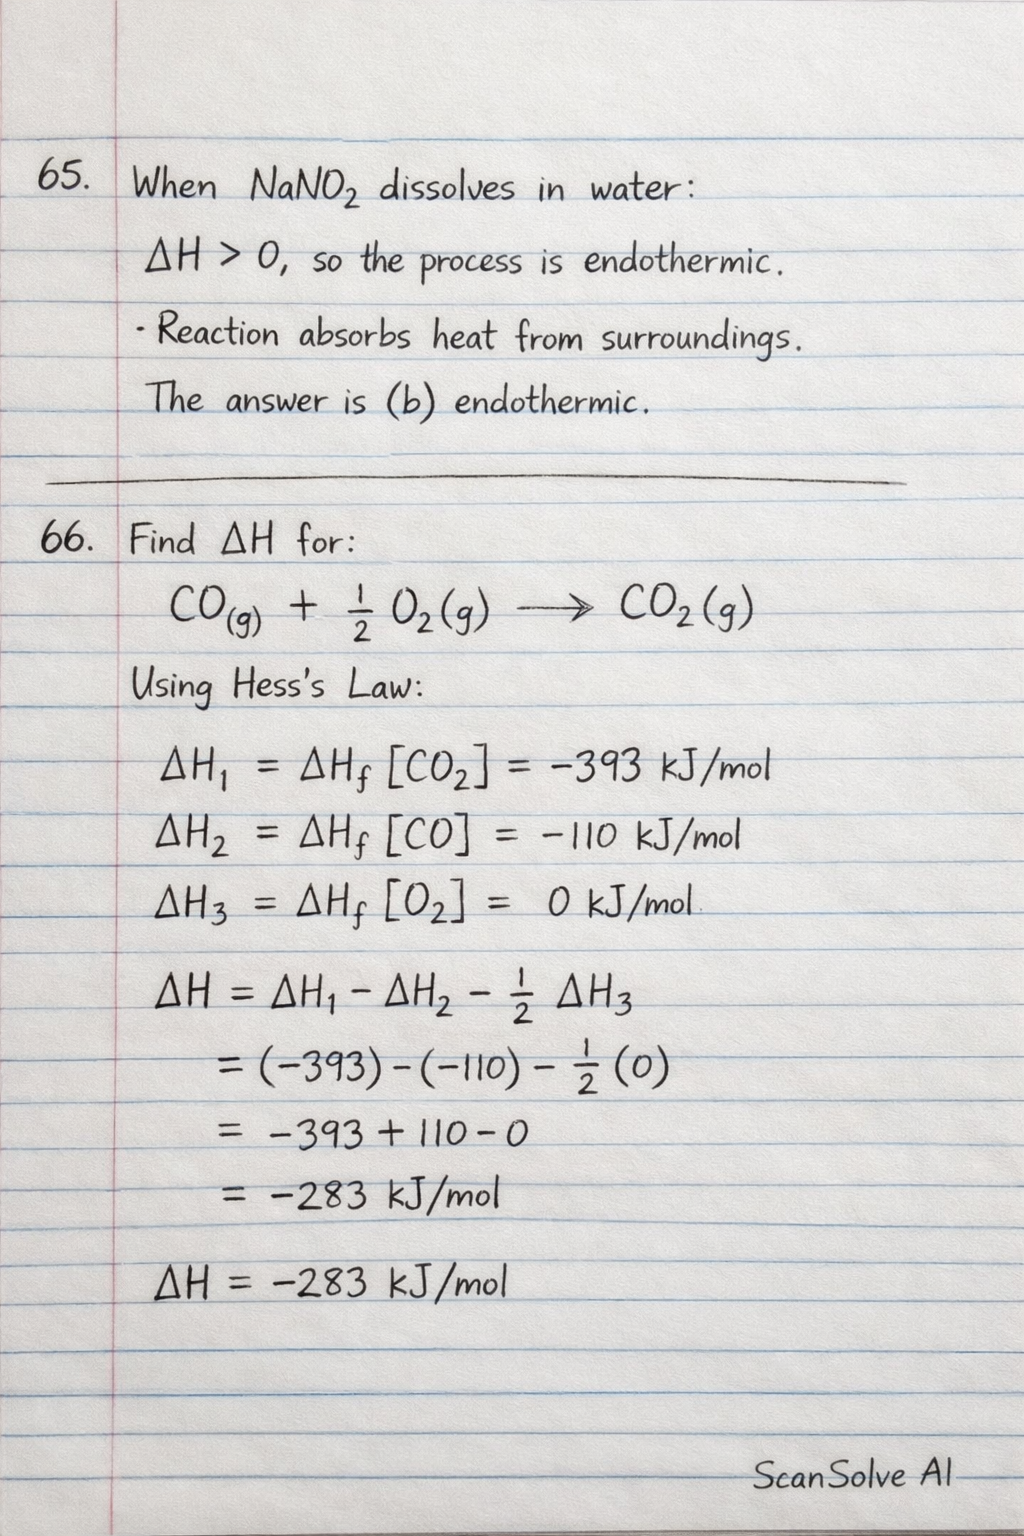 65. When NaNO₂ dissolves in water:
ΔH > 0, so the process is endothermic.
· Reaction absorbs heat from surroundings.
The answer is (b) endothermic.
66. Find ΔH for:
CO(g) + 1/2 O₂(g) → CO₂(g)
Using Hess's Law:
ΔH₁ = ΔHf [CO₂] = -393 kJ/mol
ΔH₂ = ΔHf [CO] = -110 kJ/mol
ΔH₃ = ΔHf [O₂] = 0 kJ/mol
ΔH = ΔH₁ - ΔH₂ - 1/2 ΔH₃
= (-393) - (-110) - 1/2 (0)
= -393 + 110 - 0
= -283 kJ/mol
ΔH = -283 kJ/mol
ScanSolve AI